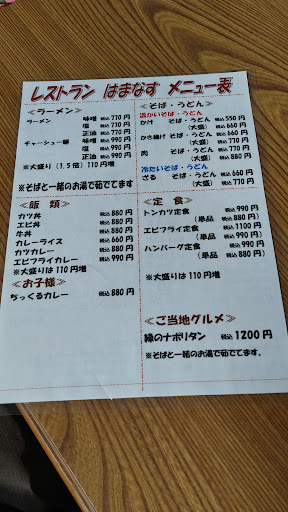 レストラン はまなす メニュー表
≪ラーメン≫
ラーメン 味噌 税込 770 円
塩 税込 770 円
正油 税込 770 円
チャーシュー麺 味噌 税込 990 円
塩 税込 990 円
正油 税込 990 円
※大盛り(1.5倍)110円増
※そばと一緒のお湯で茹でてます
≪飯 類≫
カツ丼 税込 880 円
エビ丼 税込 880 円
牛丼 税込 880 円
カレーライス 税込 660 円
カツカレー 税込 880 円
エビフライカレー 税込 990 円
※大盛りは110円増
≪お子様≫
ちっくるカレー 税込 880 円
≪そば・うどん≫
温かいそば・うどん
かけ そば・うどん 税込 550 円
(大盛) 税込 660 円
かき揚げ そば・うどん 税込 660 円
(大盛) 税込 770 円
肉 そば・うどん 税込 770 円
(大盛) 税込 880 円
冷たいそば・うどん
ざる そば・うどん 税込 660 円
(大盛) 税込 770 円
≪定 食≫
トンカツ定食 税込 990 円
(単品 税込 880 円)
エビフライ定食 税込 1100 円
(単品 税込 990 円)
ハンバーグ定食 税込 990 円
(単品 税込 880 円)
※大盛りは110円増
≪ご当地グルメ≫
緑のナポリタン 税込 1200 円
※そばと一緒のお湯で茹でてます。